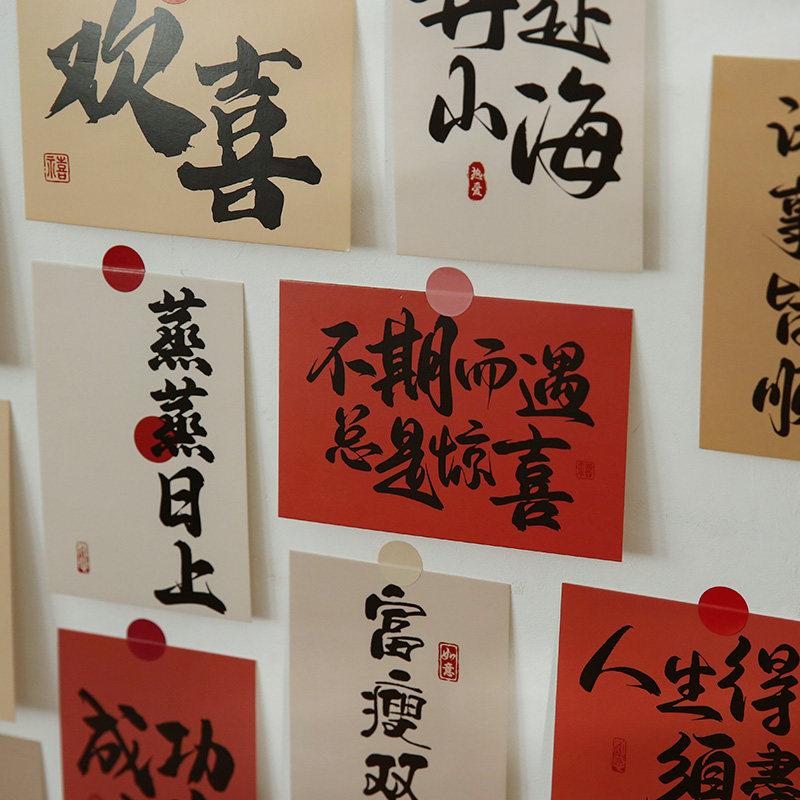 欢喜
禧
奔赴
山海
热爱
事皆顺
蒸蒸日上
不期而遇
总是惊喜
成功
富瘦双
如意
人生得
须